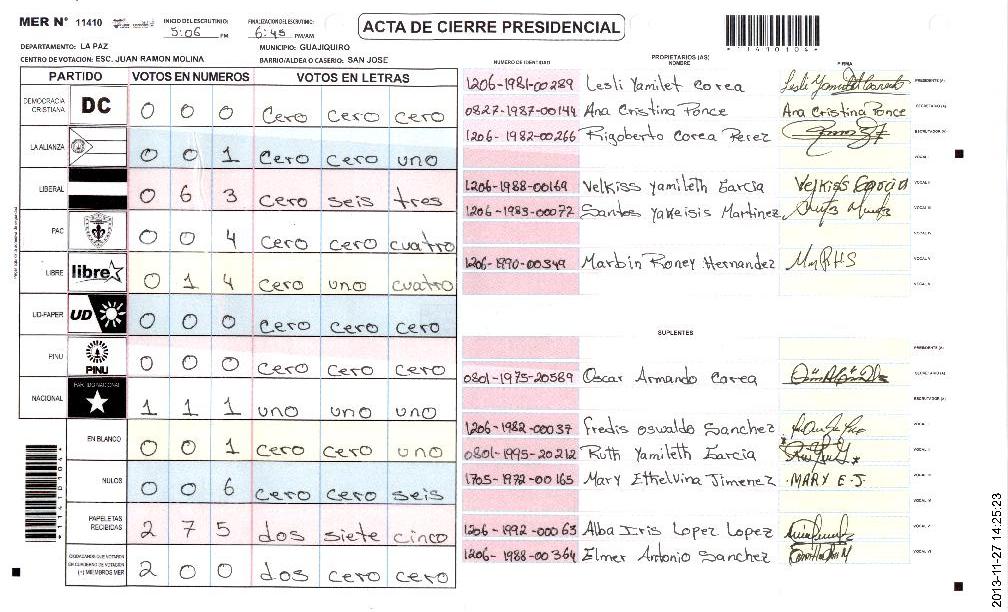 MER Nº 11410 INICIO DEL ESCRUTINIO: 5:06 PM FINALIZACION DEL ESCRUTINIO: 6:45 PM/AM
ACTA DE CIERRE PRESIDENCIAL
*1141010 4*
DEPARTAMENTO: LA PAZ MUNICIPIO: GUAJIQUIRO
CENTRO DE VOTACIÓN: ESC. JUAN RAMON MOLINA BARRIO/ALDEA O CASERIO: SAN JOSE
PARTIDO VOTOS EN NUMEROS VOTOS EN LETRAS
DEMOCRACIA CRISTIANA DC 0 0 0 Cero Cero cero
LA ALIANZA 0 0 1 Cero cero uno
LIBERAL 0 6 3 Cero seis tres
PAC 0 0 4 Cero cero cuatro
LIBRE libre 0 1 4 Cero uno cuatro
UD-FAPER UD 0 0 0 Cero Cero Cero
PINU PINU 0 0 0 Cero Cero Cero
NACIONAL PARTIDO NACIONAL 1 1 1 uno uno uno
EN BLANCO 0 0 1 Cero Cero uno
NULOS 0 0 6 cero cero seis
PAPELETAS RECIBIDAS 2 7 5 dos siete cinco
CIUDADANOS QUE VOTARON EN CUADERNO DE VOTACION (+) MIEMBROS MER 2 0 0 dos cero cero
PROPIETARIOS (AS)
NUMERO DE IDENTIDAD NOMBRE FIRMA
1206-1981-00289 Lesli Yamilet Corea PRESIDENTE (A)
0827-1987-00144 Ana Cristina Ponce Ana Cristina Ponce SECRETARIO (A)
1206-1982-00266 Rigoberto Corea Perez ESCRUTADOR (A)
VOCAL I
1206-1988-00169 Velkiss Yamileth Garcia Velkiss Garcia VOCAL II
1206-1983-00072 Santos Yakeisis Martinez VOCAL III
VOCAL IV
1206-1990-00349 Marbin Roney Hernandez VOCAL V
SUPLENTES
PRESIDENTE (A)
0801-1975-20589 Oscar Armando Correa SECRETARIO (A)
ESCRUTADOR (A)
1206-1982-00037 Fredis Osvaldo Sanchez VOCAL I
0801-1995-20212 Ruth Yamileth Garcia VOCAL II
1705-1972-00165 Mary Ethelvina Jimenez MARY E.J. VOCAL III
VOCAL IV
1206-1992-00063 Alba Iris Lopez Lopez VOCAL V
1206-1988-00364 Elmer Antonio Sanchez VOCAL VI
2013-11-27 14:25:23